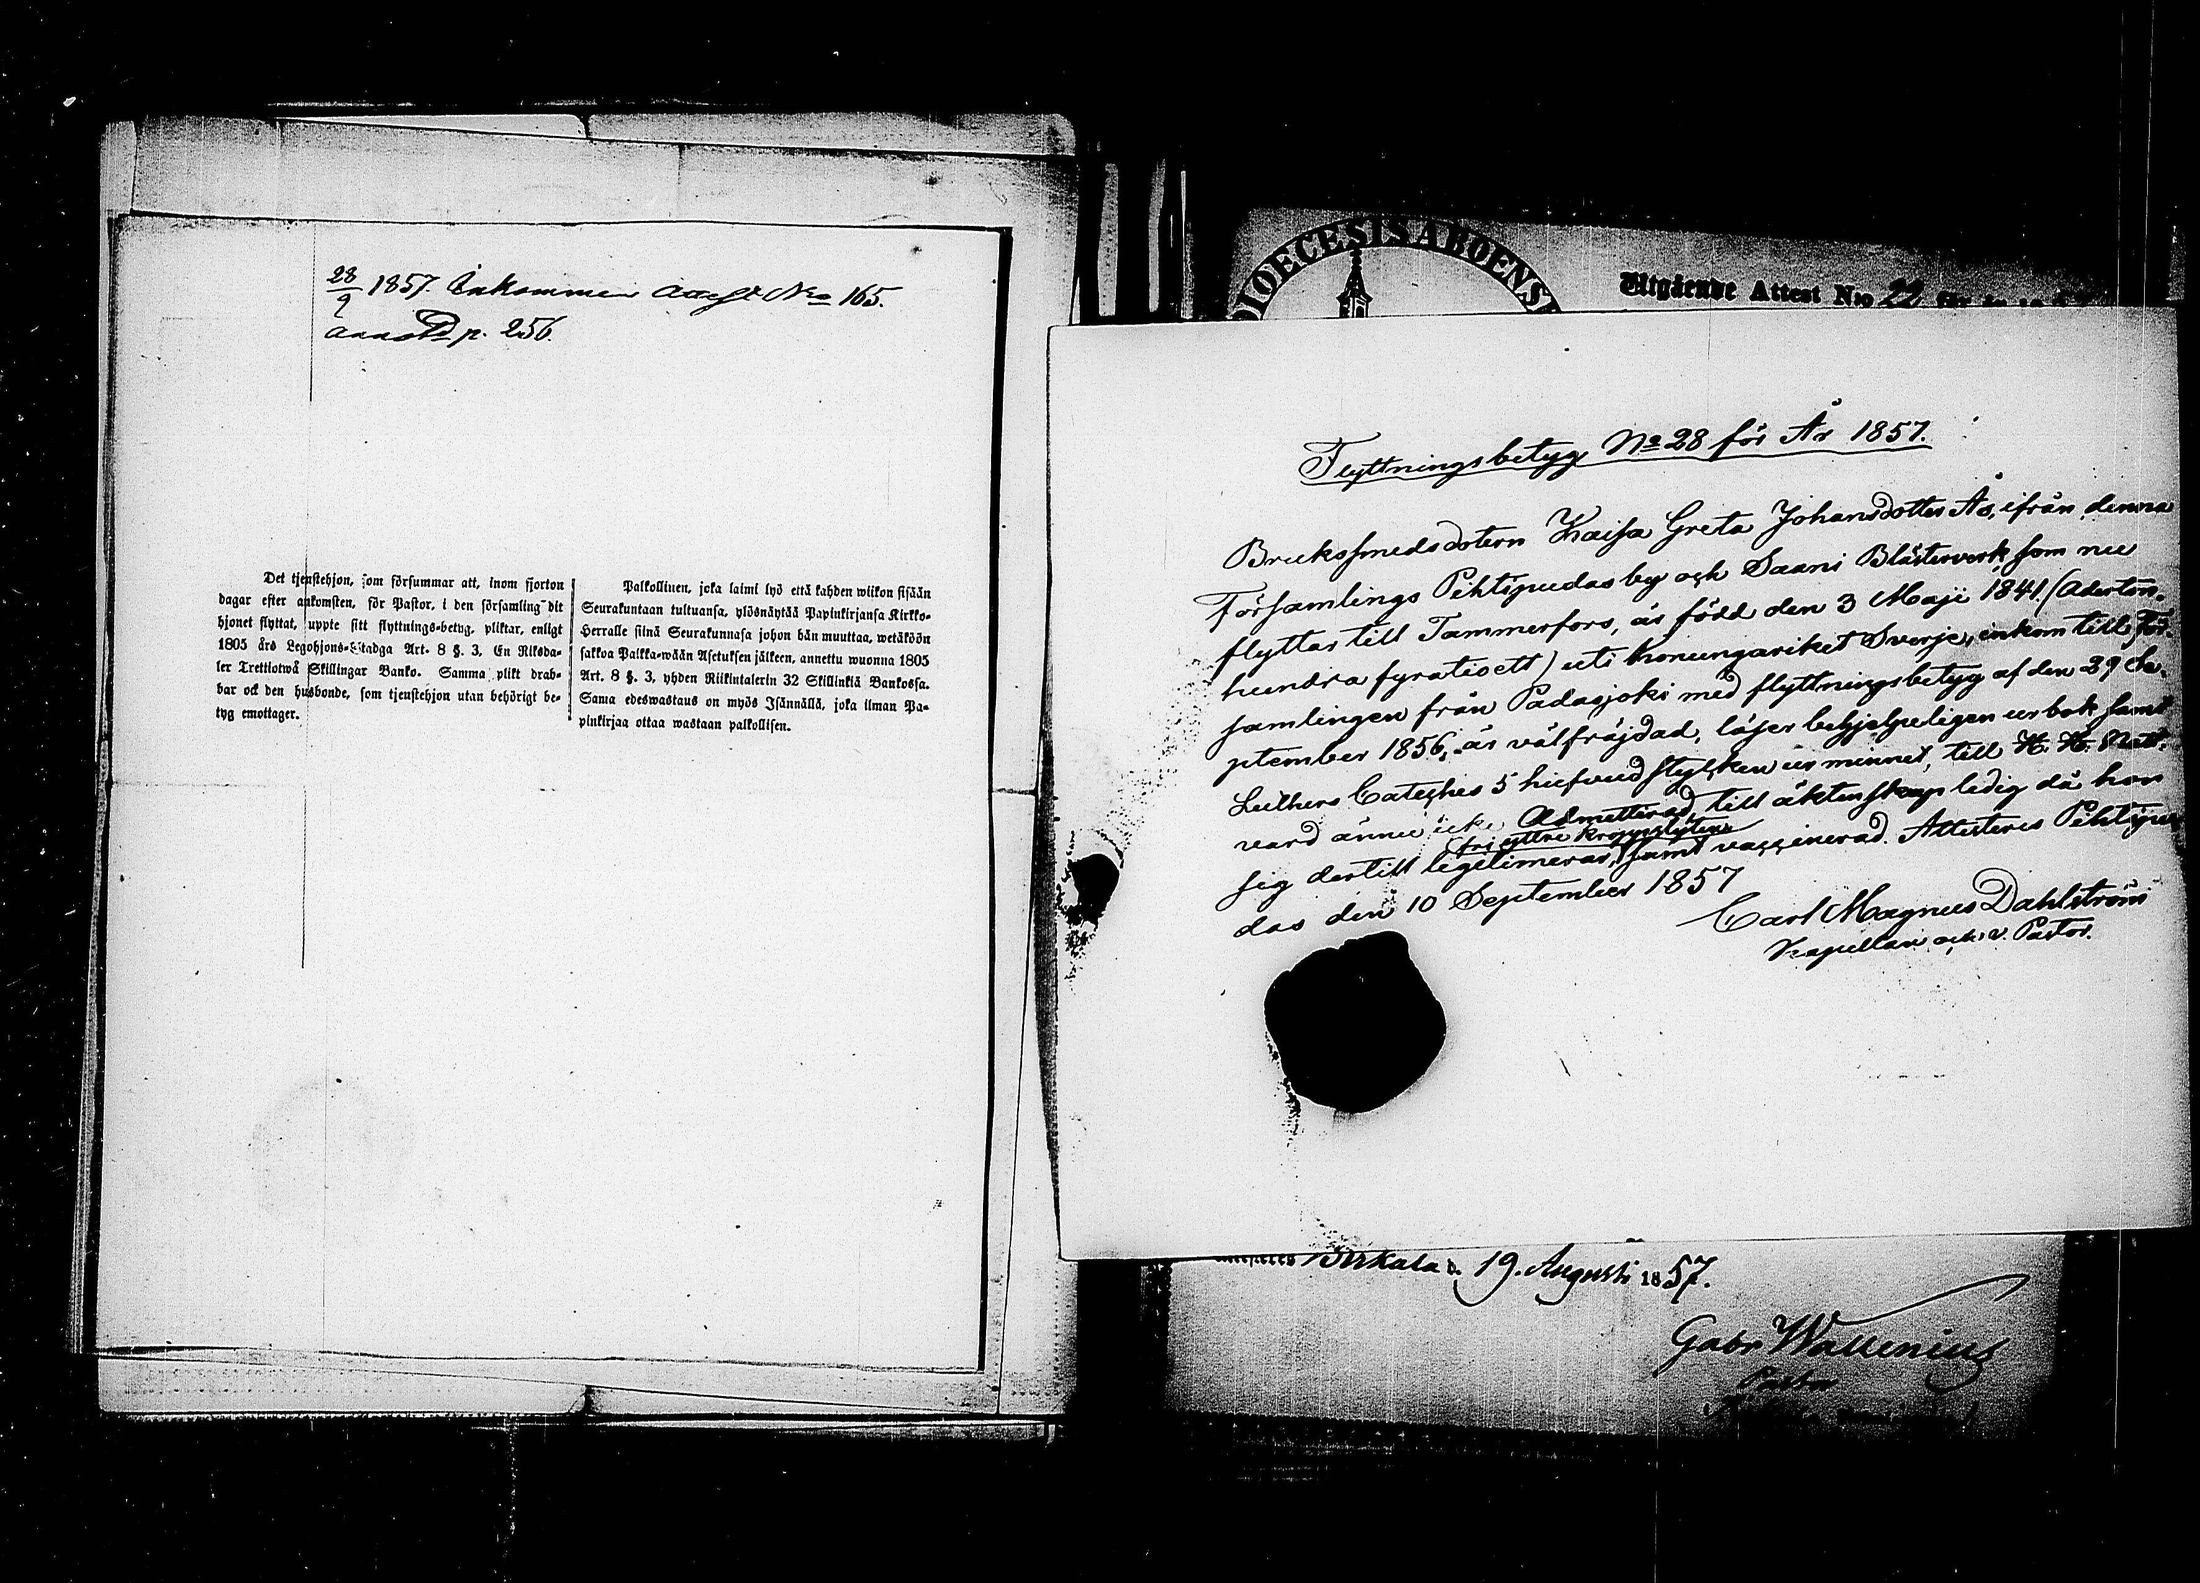 28/9 1857. Inkommen Attest No 165.
annot p. 256.
Det tjenstehjon, som försummar att, inom fjorton
dagar efter ankomsten, för Pastor, i den församling dit
hjonet flyttat, uppte sitt flyttnings-betyg, pliktar, enligt
1805 års Legohjons-Stadga Art. 8 §. 3, En Riksda-
ler Trettiotwå Skillingar Banko. Samma plikt drab-
bar ock den husbonde, som tjenstehjon utan behörigt be-
tyg emottager.
Palkollinen, joka laimi lyö että kahden wiikon sisään
Seurakuntaan tultuansa, ylösnäytää Papinkirjansa Kirkko-
Herralle siinä Seurakunnasa johon hän muuttaa, wetäköön
sakkoa Palkka-wään Asetuksen jälkeen, annettu wuonna 1805
Art. 8 §. 3, yhden Riikintalerin 32 Skillinkiä Bankossa.
Sama edeswastaus on myös Isännällä, joka ilman Pa-
pinkirjaa ottaa wastaan palkollisen.
DIOECESIS ABOENSI
Utgående Attest N:o 22
Flyttningsbetyg No 28 för År 1857.
Bruksfmedsdotern Kaisa Greta Johansdotter Ås, ifrån denna
Församlings Pihtipudas by och Saani Blästerverk som nu
flyttar till Tammerfors, är född den 3 Maji 1841. (Aderton-
hundra fyratioett) uti Konungariket Sverje, inkom till För-
samlingen från Padasjoki med flyttningsbetyg af den 29 Se-
ptember 1856, är välfräjdad, läser behjelpeligen ur bok samt
Luthers Cateches 5 hufvudstycken ur minnet, till H. H. Natt-
vard ännu icke Admitterad, till äktenskap ledig då hon
fri yttre kroppslyten
sig dertill legitimerar, samt vaccinerad. Attesteres Pihtipu
das den 10 September 1857
Carl Magnus Dahlström
Kapellan och v. Pastor.
Birkala d. 19. Augusti 1857.
Gabr Wallenius
Pastor